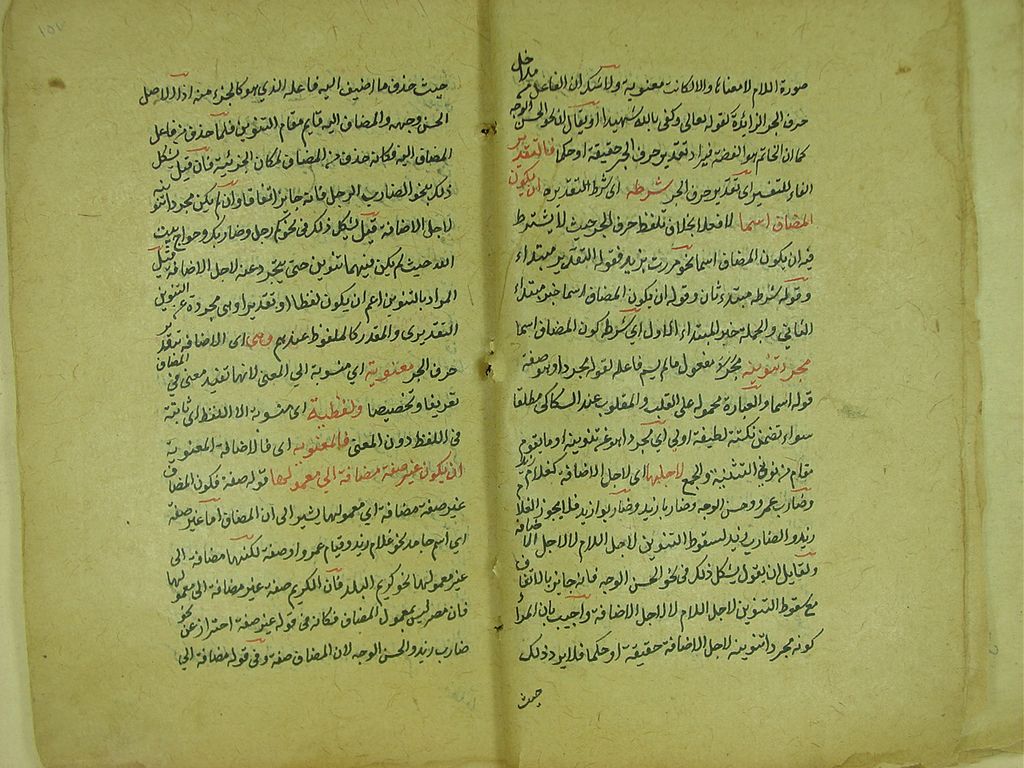 صورة اللام لا معناها والا لكانت معنوية ولا شك ان الفاعل مدخل
حرف الجر الزايدة كقوله تعالى وكفى بالله شهيدا او يقال لا نحو الحسن الوجه
كما ان الخاتم هو الفضة فيراد تقدير حرف الجر حقيقة او حكما فالتقدير
الفاء للتفسير اى تقدير حرف الجر شرطه اى شرط التقدير ان يكون
المضاف اسما لا فعلا بخلاف تلفظ حرف الجر حيث لا يشترط
فيه ان يكون المضاف اسما نحو مررت بزيد فقوله التقدير مبتداء
وقوله شرطه مبتداء ثان وقوله ان يكون المضاف اسما خبر مبتداء
الثاني والجملة خبر المبتداء الاول اى شرطه كون المضاف اسما
مجردا تنوينه مجرد مفعول ما لم يسم فاعله لقوله مجردا وهو صفة
قوله اسما والعبارة محمولة على القلب والمقلوب عند السكاكى مطلقا
سواء تضمن نكتة لطيفة اولى اى مجردا هو عن تنوينه او ما يقوم
مقامه من نونى التثنية والجمع لاجلها اى لاجل الاضافة كغلام زيد
وضارب عمرو وحسن الوجه وضاربا زيد وضاربوا زيد فلا يجوز الغلام
زيد والضارب زيد لسقوط التنوين لاجل اللام لا لاجل الاضافة
ولقايل ان يقول يشكل ذلك فى نحو الحسن الوجه فانه جايز بالاتفاق
مع سقوط التنوين لاجل اللام لا لاجل الاضافة واجيب بان المراد
كونه مجردا تنوينه لاجل الاضافة حقيقة او حكما فلا يرد ذلك
حيث
حيث حذف ما اضيف اليه فاعله الذي هو كالجزء منه اذ الاصل
الحسن وجهه والمضاف اليه قايم مقام التنوين فلما حذف من فاعل
المضاف اليه فكانه حذف من المضاف لمكان الجزئية فان قيل يشكل
ذلك بنحو الضارب الرجل فانه جائز اتفاقا وان لم يكن مجردا تنوينه
لاجل الاضافة قيل يشكل ذلك فى نحو كم رجل وضاربك وحواج بيت
الله حيث لم يكن فيهما تنوين حتى يتجرد عنه لاجل الاضافة قيل
المراد بالتنوين اعم ان يكون لفظا او تقديرا وهى مجردة عن التنوين
التقديرى والمقدر كالملفوظ عندهم وهى اى الاضافة بتقدير
حرف الجر معنوية اى منسوبة الى المعنى لانها تفيد معنى فى المضاف
تعريفا وتخصيصا ولفظية اى منسوبة الى اللفظ اى ثابتة
فى اللفظ دون المعنى فالمعنوية اى فالاضافة المعنوية
ان يكون غير صفة مضافة الى معمولها قوله صفة فكون المضاف
غير صفة مضافة اى معمولها يشير الى ان المضاف اما غير صفة
اى اسم جامد نحو غلام زيد وقيام عمرو او صفة لكنها مضافة الى
غير معمولها نحو كريم البلد فان الكريم صفة غير مضافة الى معمولها
فان مصر ليس بمعمول المضاف فكانه فى قوله غير صفة احتراز عن نحو
ضارب زيد والحسن الوجه لان المضاف صفة وفى قوله مضافة الى